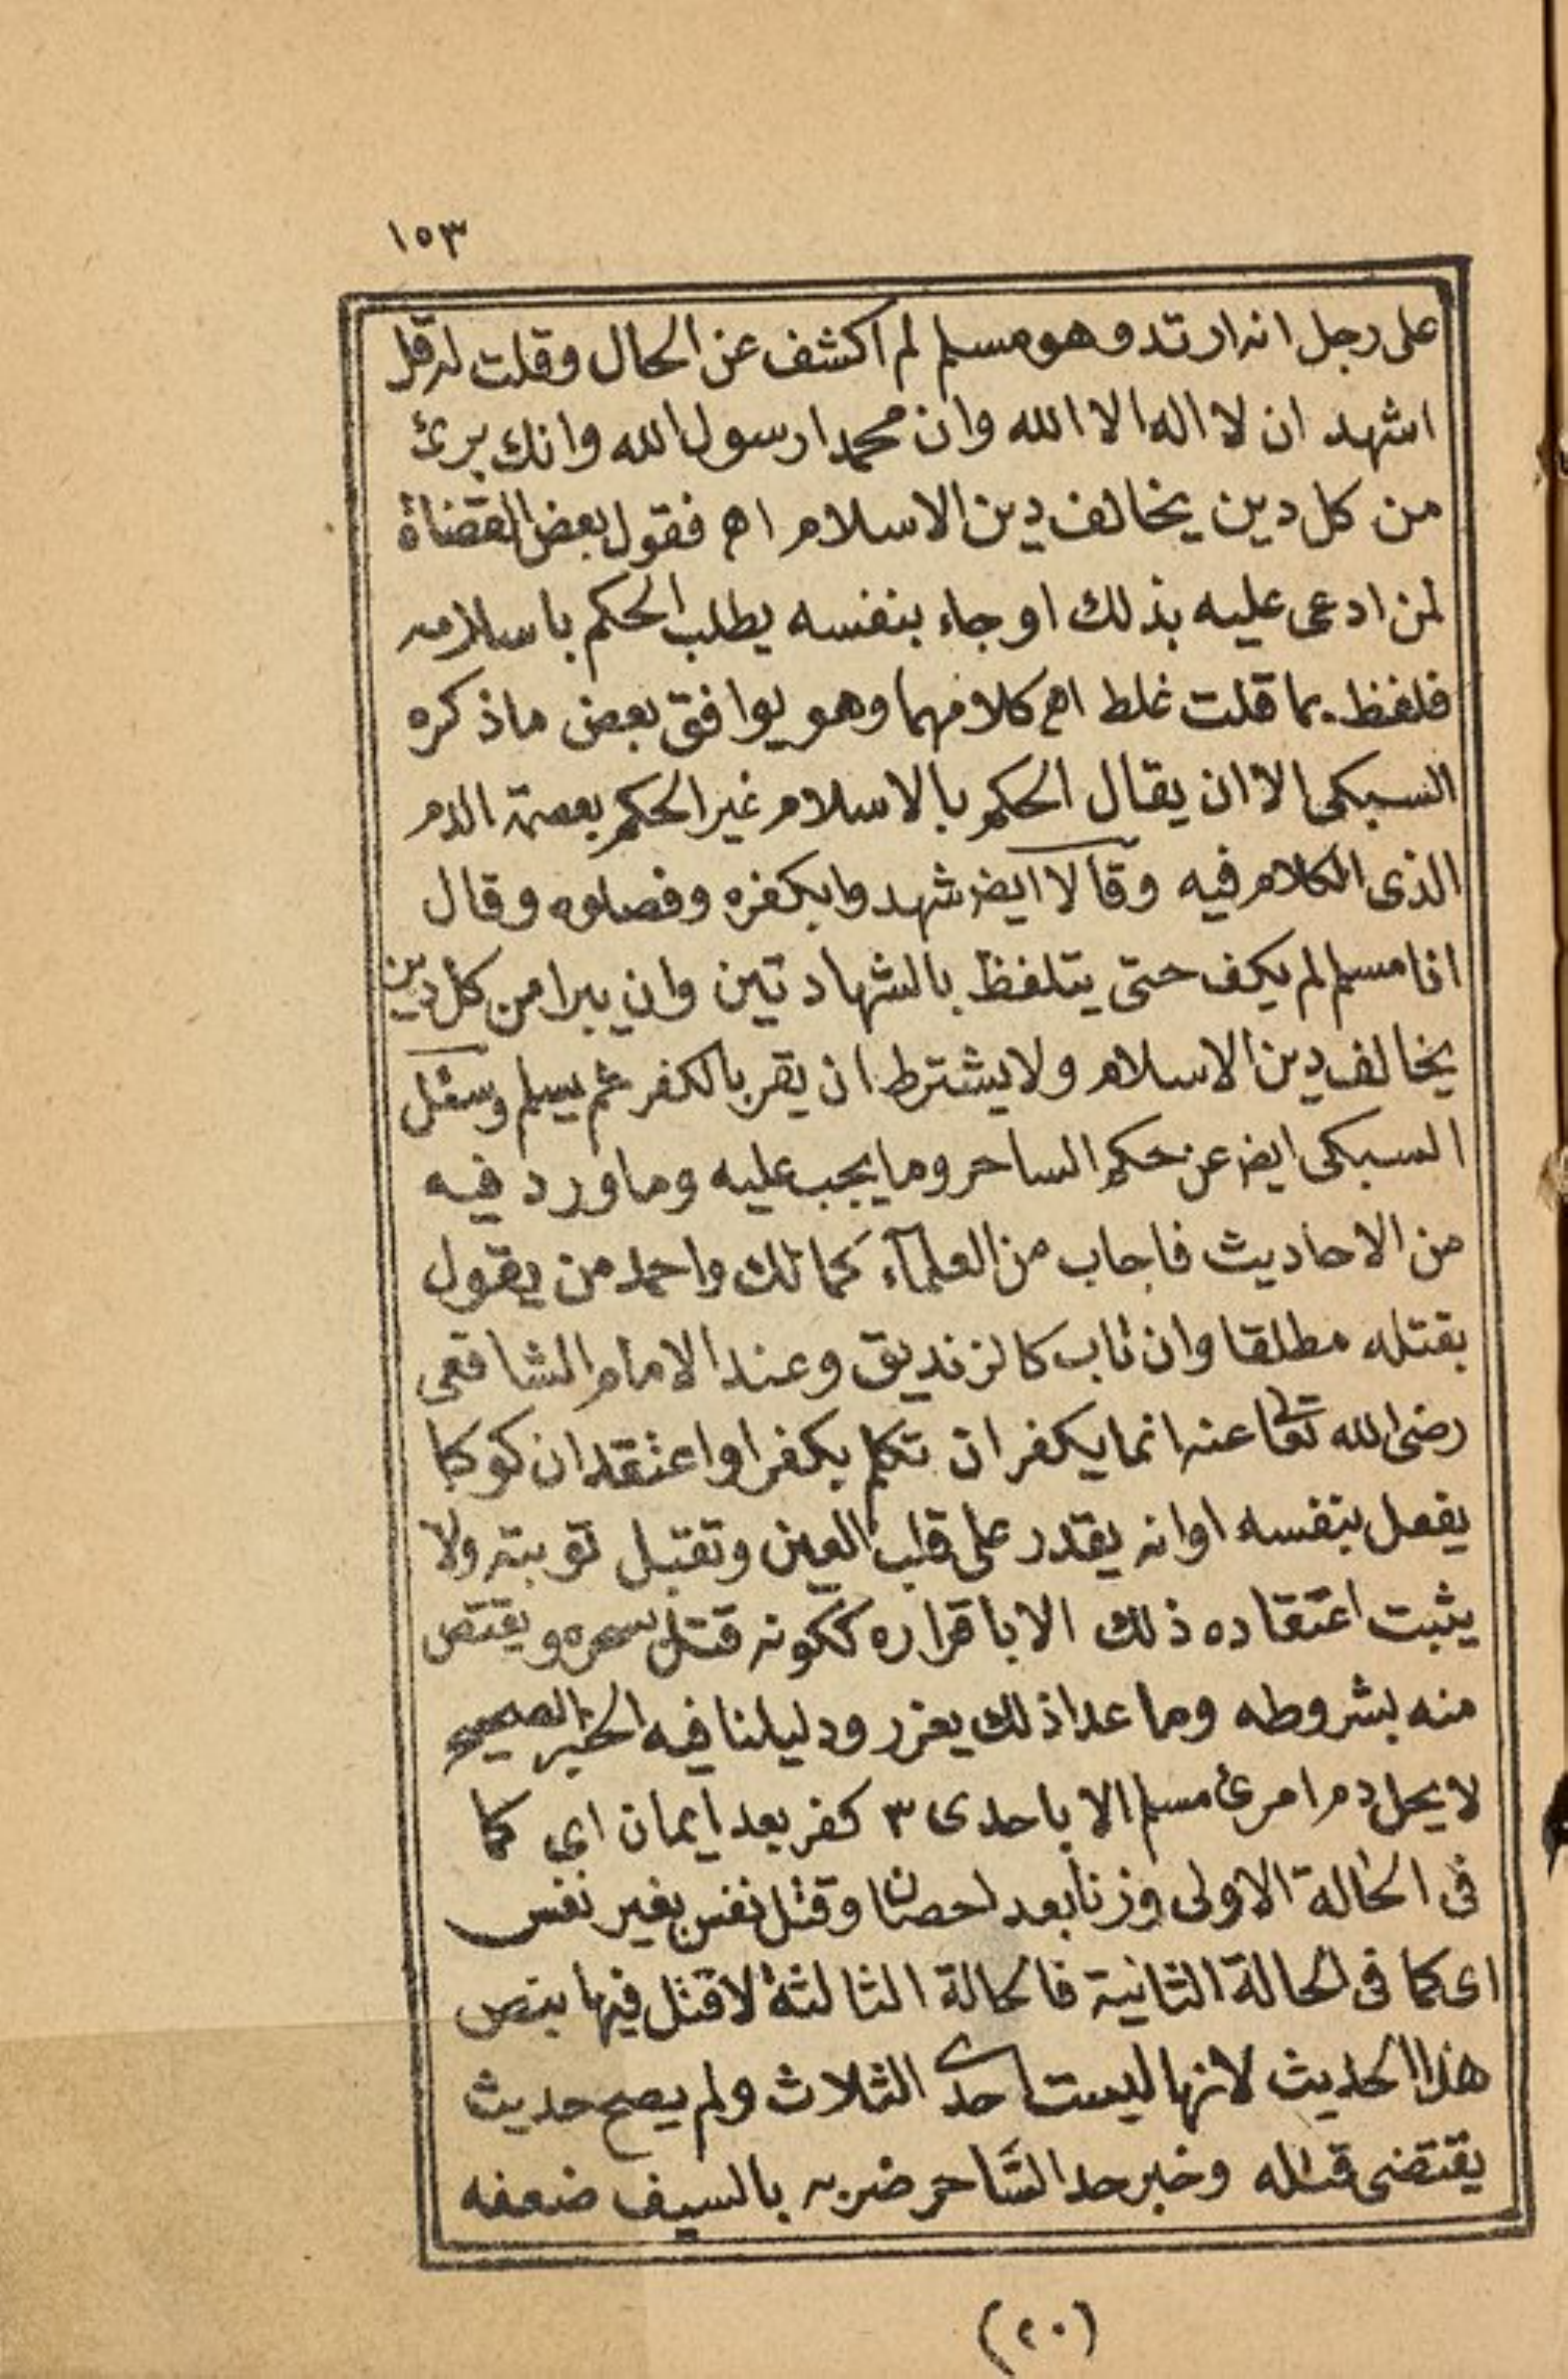 ١٥٣
على رجل انه ارتد وهو مسلم لم اكشف عن الحال وقلت له قل
اشهد ان لا اله الا الله وان محمدا رسول الله وانك برئ
من كل دين يخالف دين الاسلام اهـ فقول بعض القضاة
لمن ادعى عليه بذلك او جاء بنفسه يطلب الحكم باسلامه
فلفظ بما قلت غلط اهـ كلامهما وهو يوافق بعض ما ذكره
السبكى الا ان يقال الحكم بالاسلام غير الحكم بعصمة الدم
الذى الكلام فيه وقالا ايضر شهدوا بكفره وفصلوه وقال
انا مسلم لم يكف حتى يتلفظ بالشهادتين وان يبرا من كل دين
يخالف دين الاسلام ولا يشترط ان يقر بالكفر ثم يسلم وسئل
السبكى ايضر عن حكم الساحر وما يجب عليه وما ورد فيه
من الاحاديث فاجاب من العلمآء كمالك واحمد من يقول
بقتله مطلقا وان تاب كالزنديق وعند الامام الشافعى
رضى الله تعا عنه انما يكفر ان تكلم بكفر او اعتقد ان كوكبا
يفعل بنفسه او انه يقدر على قلب العين وتقبل توبته ولا
يثبت اعتقاده ذلك الا باقراره ككونه قتل بسحره ويقتص
منه بشروطه وما عدا ذلك يعزر ودليلنا فيه الخبر الصحيح
لا يحل دم امرئ مسلم الا باحدى ٣ كفر بعد ايمان اى كما
فى الحالة الاولى وزنا بعد احصان وقتل نفس بغير نفس
اى كما فى الحالة الثانية فالحالة الثالثة لا قتل فيها بنص
هذا الحديث لانها ليست احدى الثلاث ولم يصح حديث
يقتضى قتله وخبر حد السَّاحر ضربه بالسيف ضعفه
(٢٠)